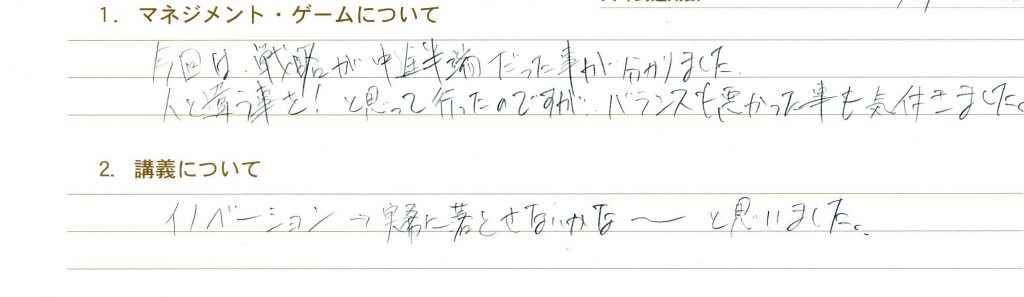 1. マネジメント・ゲームについて
今回は、戦略が中途半端だった事が分かりました。
人と違う事を！と思って行ったのですが、バランスも悪かった事も気付きました。
2. 講義について
イノベーション→実務に落とせないかな〜と思いました。